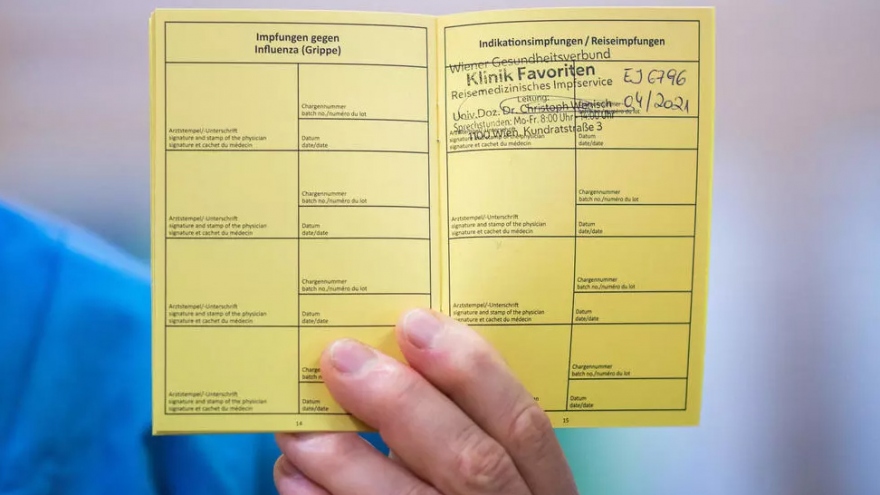 Impfungen gegen
Influenza (Grippe)
Chargennummer
batch no./numéro du lot
Arztstempel/-Unterschrift
signature and stamp of the physician
signature et cachet du médecin
Datum
date/date
Chargennummer
batch no./numéro du lot
Arztstempel/-Unterschrift
signature and stamp of the physician
signature et cachet du médecin
Datum
date/date
Chargennummer
batch no./numéro du lot
Arztstempel/-Unterschrift
signature and stamp of the physician
signature et cachet du médecin
Datum
date/date
batch n
Arztstempel/-Unterschrift
signature and stamp of the physician
signature et cachet du médecin
Datum
date/date
14
Indikationsimpfungen / Reiseimpfungen
Wiener Gesundheitsverbund
Klinik Favoriten
EJ6796
Reisemedizinisches Impfservice
Leitung:
04/2021
Univ.Doz. Dr. Christoph Wenisch
Sprechstunden: Mo-Fr. 8:00 Uhr - 14:00 Uhr
1100 Wien, Kundratstraße 3
signature and stamp of the physician
signature et cachet du médecin
Datum
date/date
Chargennummer
batch no./numéro du lot
Arztstempel/-Unterschrift
signature and stamp of the physician
signature et cachet du médecin
Datum
date/date
Chargennummer
batch no./numéro du lot
Arztstempel/-Unterschrift
signature and stamp of the physician
signature et cachet du médecin
Datum
date/date
Chargennummer
batch no./numéro du lot
Datum
date/date
15